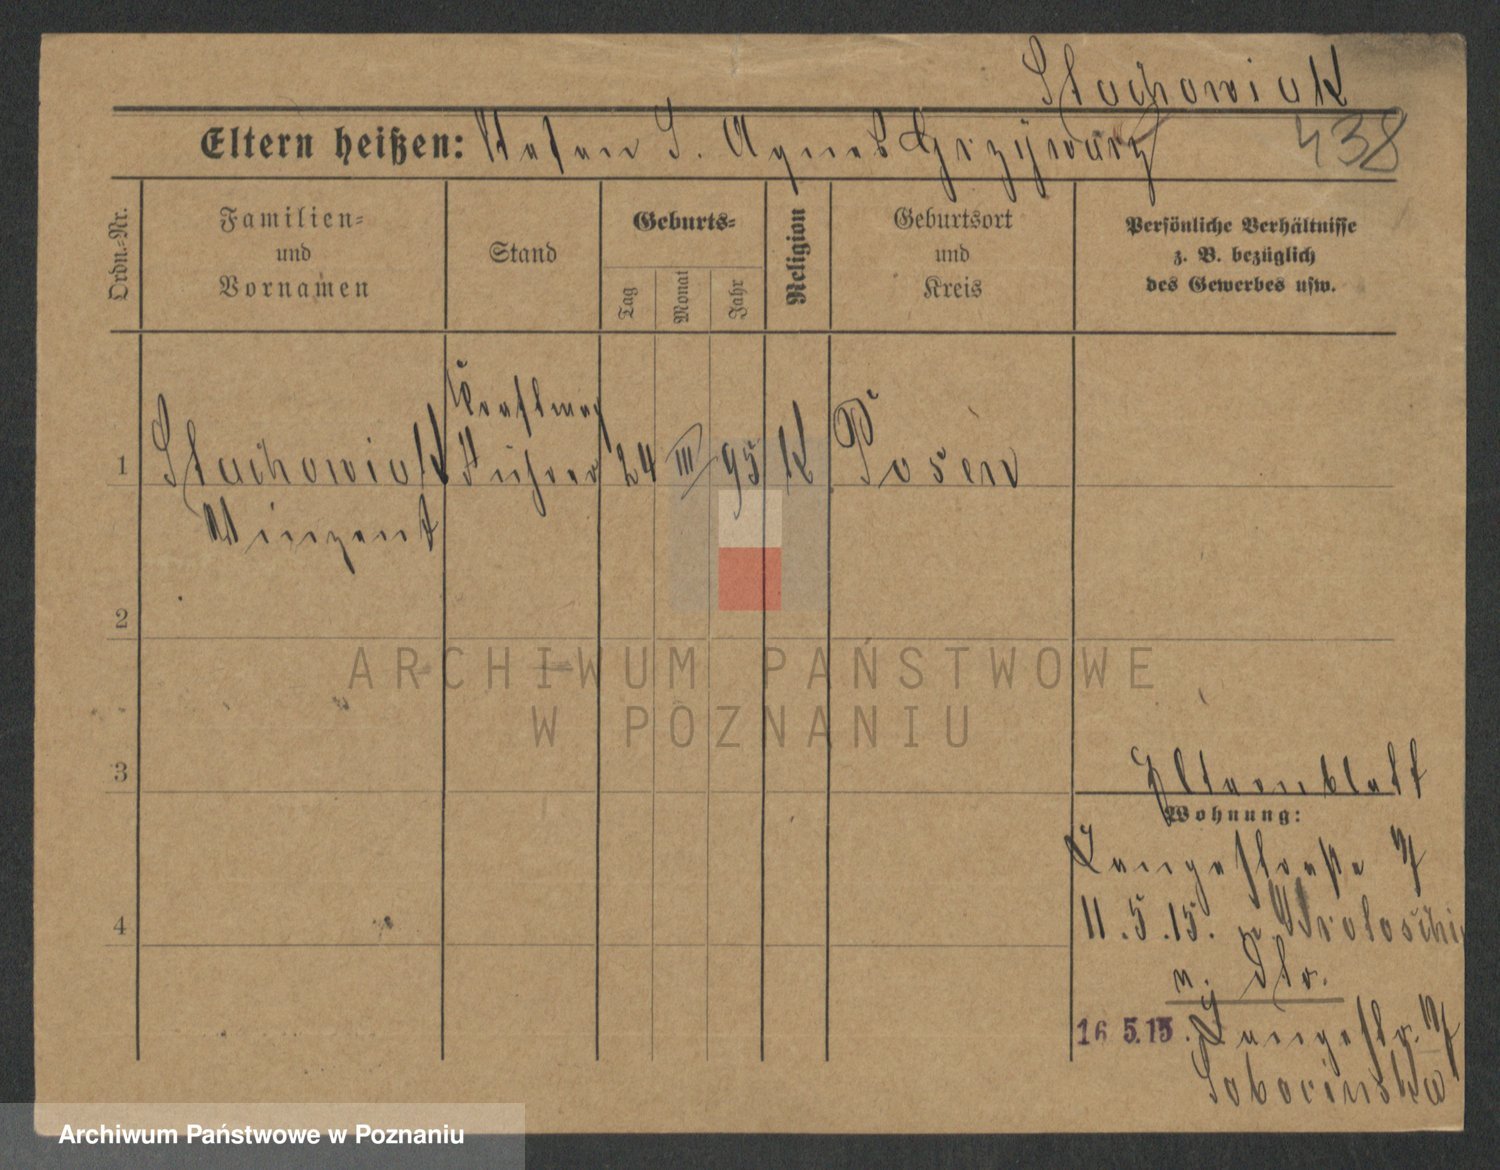 Stachowiak
Eltern heißen: Stefan S. Agnes Grzywacz
438
Ordn.-Nr.
Familien- und Vornamen
Stand
Geburts-
Tag
Monat
Jahr
Religion
Geburtsort und Kreis
Persönliche Verhältnisse
z. B. bezüglich
des Gewerbes usw.
Kraftwag
1 Stachowiak Führer 24 III 95 K Posen
Winzent
2
3
4
Elternblatt
Wohnung:
Langestraße 7
11.5.15. Wroloschi
n. dtr.
16 5.15. Langestr. 7
Soborinska
ARCHIWUM PAŃSTWOWE
W POZNANIU
Archiwum Państwowe w Poznaniu